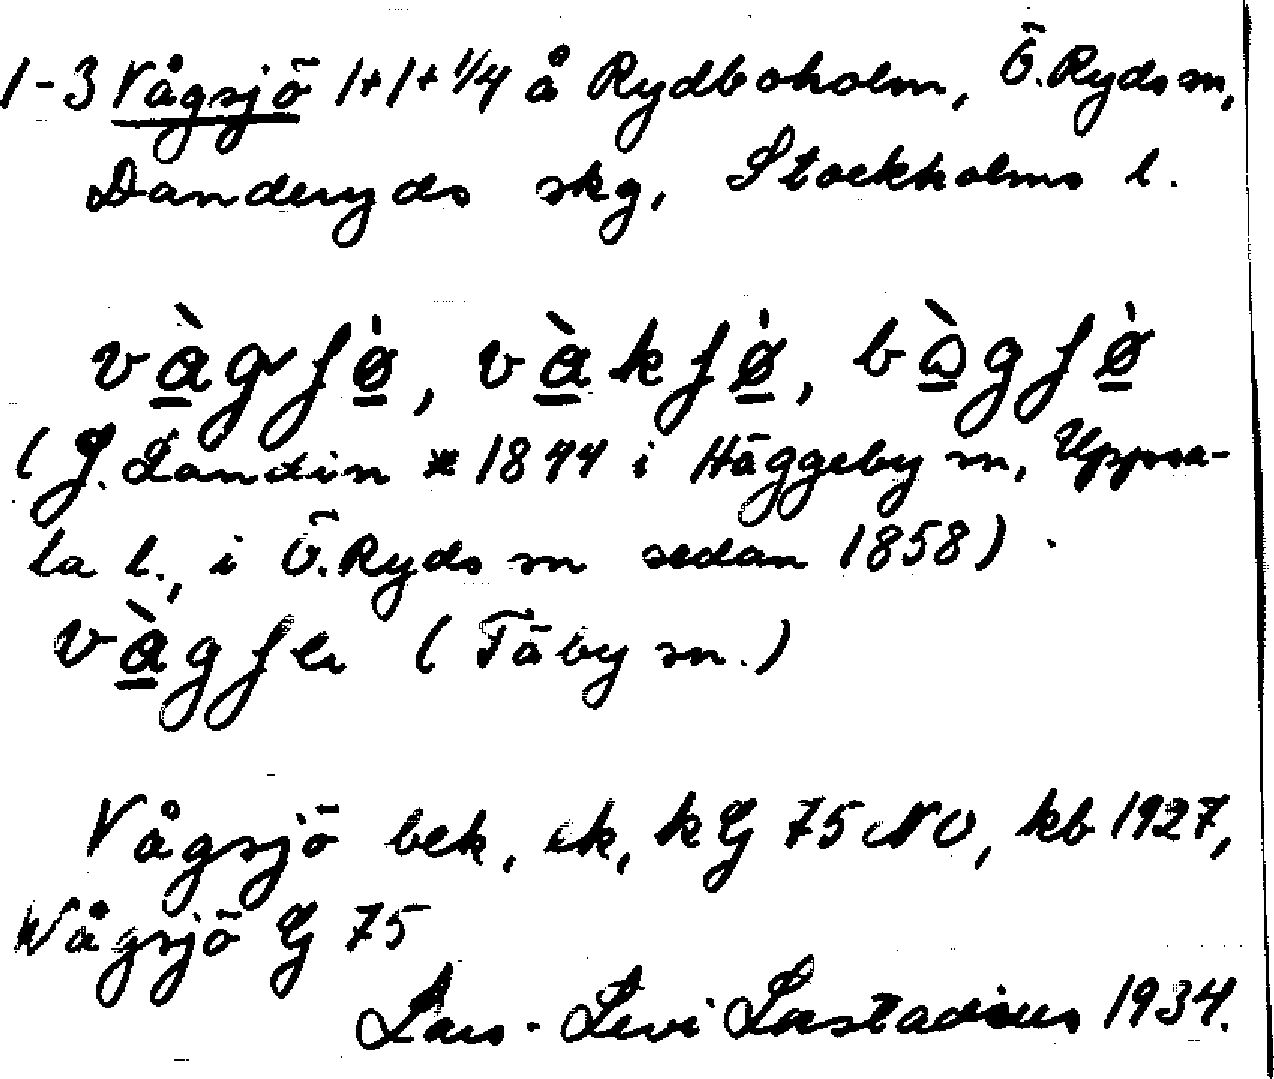 1-3 Vågsjö 1+1+1/4 å Rydboholm, Ö. Ryds sn,
Danderyds skg, Stockholms l.
(J. Landin * 1844 i Häggeby sn, Uppsa-
la l., i Ö. Ryds sn sedan 1858)
(Täby sn.)
Vågsjö bek, ek, kG 75 NO, kb 1927,
Wågsjö G 75
Lars-Levi Læstadius 1934.